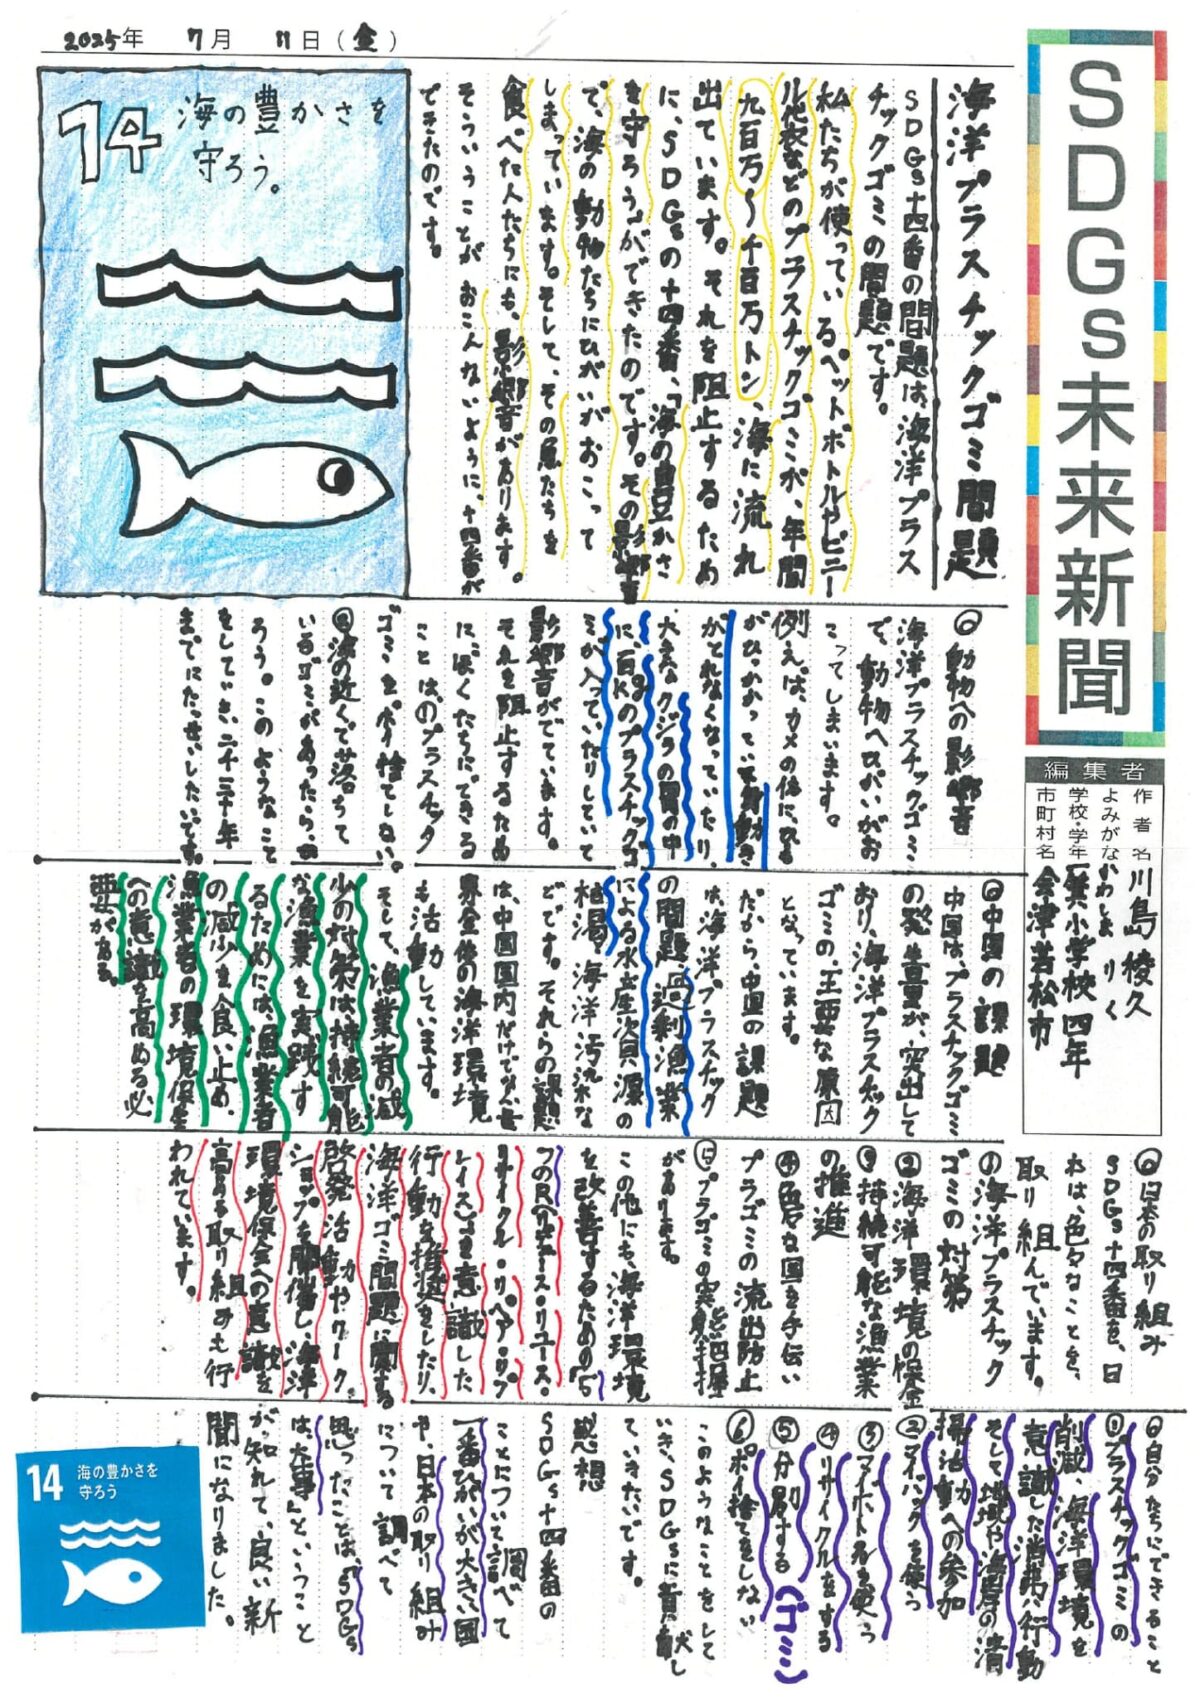 2025年 7月 11日（金）
SDGs未来新聞
編集者
作者名 川島 稜久
よみがな かわしま りく
学校・学年 一箕小学校 四年
市町村名 会津若松市
海洋プラスチックゴミ問題
SDGs十四番の問題は海洋プラス
チックゴミの問題です。
私たちが使っているペットボトルやビニー
ル袋などのプラスチックゴミが、年間
九百万〜千百万トン、海に流れ
出ています。それを阻止するため
に、SDGsの十四番、「海の豊かさ
を守ろう」ができたのです。その影響
で、海の動物たちにひがいがおこって
しまっています。そして、その魚たちを
食べた人たちにも、影響があります。
そういうことが おこんないように、十四番が
できたのです。
14 海の豊かさを
守ろう。
◎動物への影響
海洋プラスチックゴミ
で、動物へひがいがお
こってしまいます。
例えば、カメの体にひも
がひっかかっていて身動き
がとれなくなっていたり、
大きなクジラの胃の中
に、百kgのプラスチックゴ
ミが入っていたりしていて
影響がでています。
それを阻止するため
に、ぼくたちにできる
ことは、①プラスチック
ゴミをポイ捨てしない。
②海の近くで落ちて
いるゴミがあったら、
ろう。このようなこと
をしていき、二千三十年
までにたっせいしたいです。
◎中国の課題
中国は、プラスチックゴミ
の発生量が、突出して
おり、海洋プラスチック
ゴミの、主要な原因
となっています。
だから、中国の課題
は、海洋プラスチック
の問題、過剰漁業
による水産資源の
枯渇、海洋汚染な
どです。それらの課題
は、中国国内だけでなく世
界全体の海洋環境
も活動しています。
そして、漁業者の減
少の対策は持続可能
な漁業を実践す
るためには、漁業者
の減少を食い止め、
漁業者の環境保全
への意識を高める必
要がある。
◎日本の取り組み
SDGs十四番を、日
本は、色々なことを、
取り組んでいます。
①海洋プラスチック
ゴミの対策
②海洋環境の保全
③持続可能な漁業
の推進
④色々な国を手伝い
プラゴミの流出防止
⑤プラゴミの実態把握
があります。
この他にも、海洋環境
を改善するための「5
つのR(リデュース・リユース・
リサイクル・リペア・リプ
レイス)」を意識した
行動を推進をしたり、
海洋ゴミ問題に関する
啓発活動やワーク
ショップを開催し、海洋
環境保全への意識を
高める取り組みも行
われています。
◎自分たちにできること
①プラスチックゴミの
削減、海洋環境を
意識した消費行動
そして地域や海岸の清
掃活動への参加
②マイバックを使う
③マイボトルを使う
④リサイクルをする
⑤分別する(ゴミ)
⑥ポイ捨てをしない
このようなことをして
いき、SDGsに貢献し
ていきたいです。
感想
SDGs十四番の
ことについて調べて
一番ひがいが大きい国
や、日本の取り組み
について調べて
思ったことは、「SDGs
は大事」ということ
が知れて、良い新
聞になりました。
14 海の豊かさを
守ろう